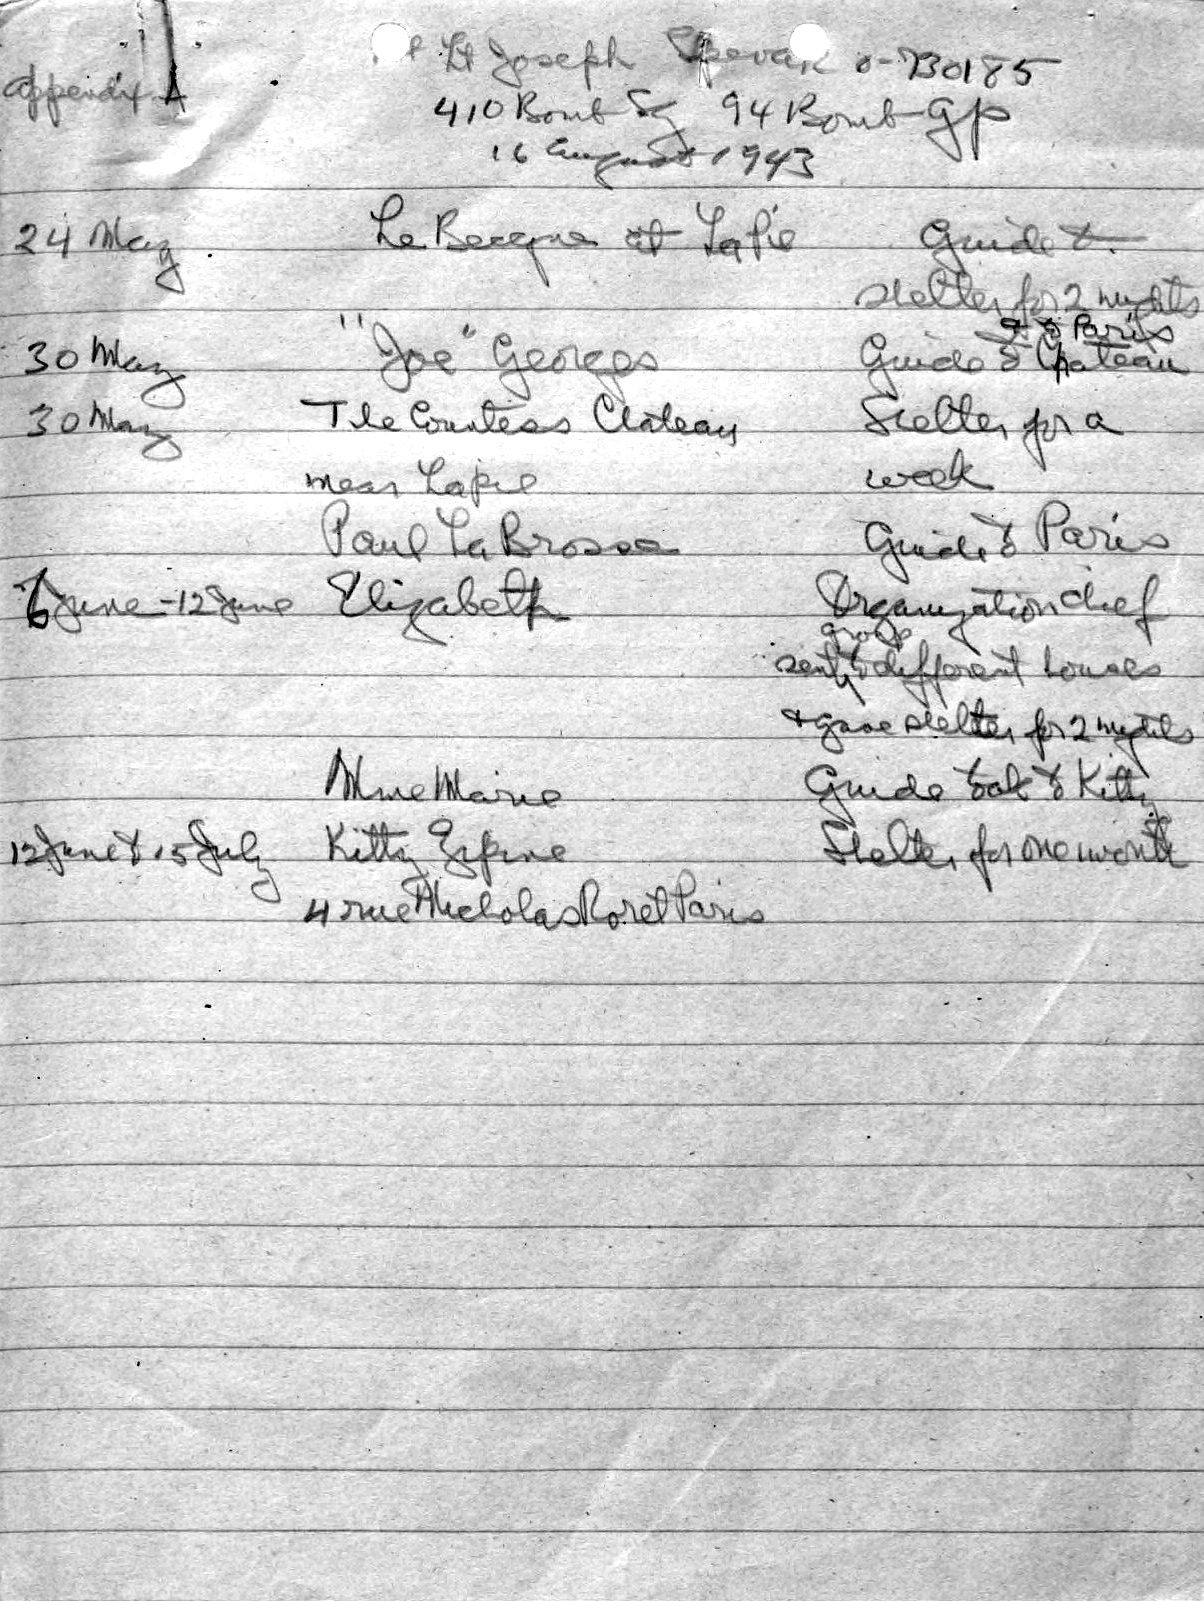 Appendix A
Lt Joseph Spevak O-730185
410 Bomb Sq 94 Bomb Gp
16 August 1943
24 May Le Becque at Lapie Guide &
shelter for 2 nights
& to Paris
30 May "Joe" Georges Guide to Chateau
30 May The Countess Chateau Shelter for a
near Lapie week
Paul La Brosse Guide to Paris
6 June - 12 June Elizabeth Organization chief
group
sent to different houses
& gave shelter for 2 nights
Mme Marie Guide to Kitty
12 June to 15 July Kitty Shelter for one month
4 rue Nicholas Roret Paris